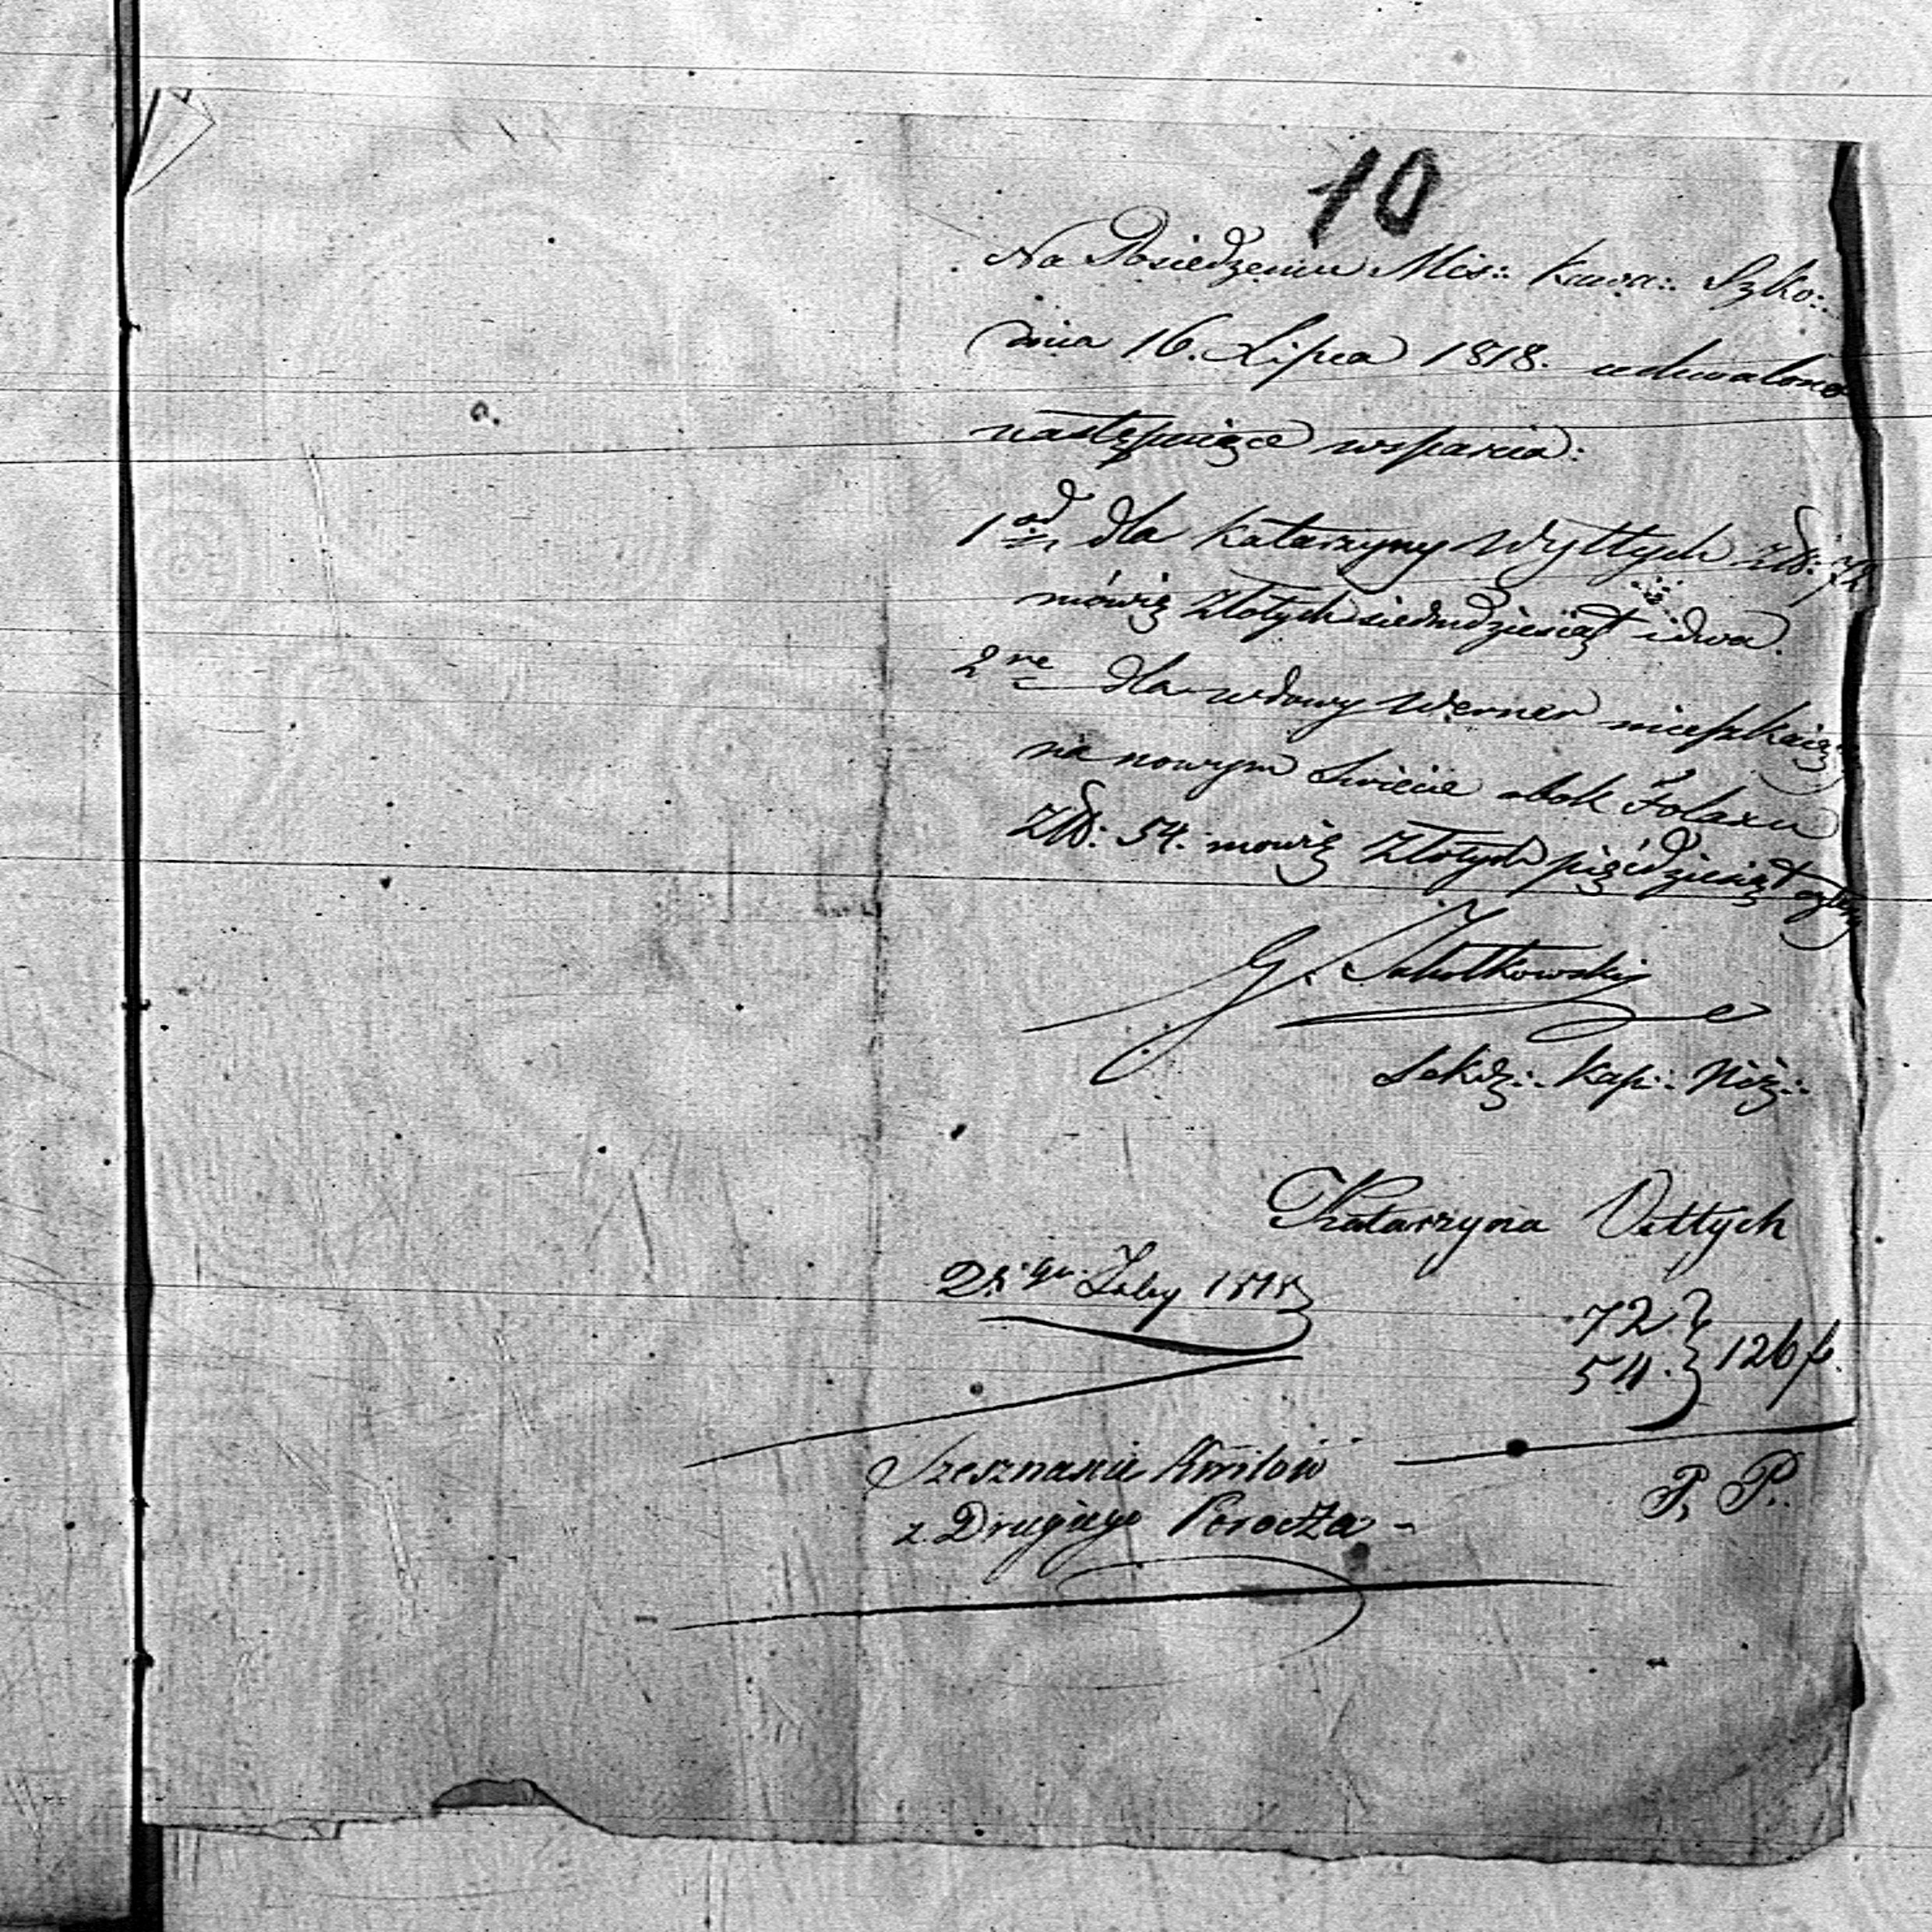 10
Na Posiedzeniu Mis:. Kawa:. Szko:.
dnia 16. Lipca 1818. uchwalono
następuiące wsparcia:
1od dla Katarzyny Wyttych Złł: 72
mówię Złotych siedmdziesiąt i dwa.
2re dla wdowy Werner mieszkaiący
na nowym Swiecie obok
Złł: 54. mówię Złotych pięćdziesiąt cztery
G.
Kap:. Niż:.
Katarzyna Vittych
1818
72
54. } 126 f.
Szesznaście Kwitów
z Drugiego
P, P.